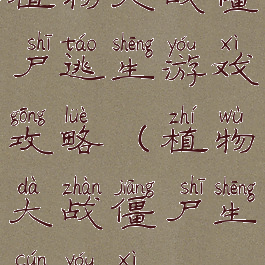 shī táo shēng yóu xì
尸逃生游戏
gōng lüè zhí wù
攻略(植物
dà zhàn jiāng shī shēng
大战僵尸生
cún yóu xì